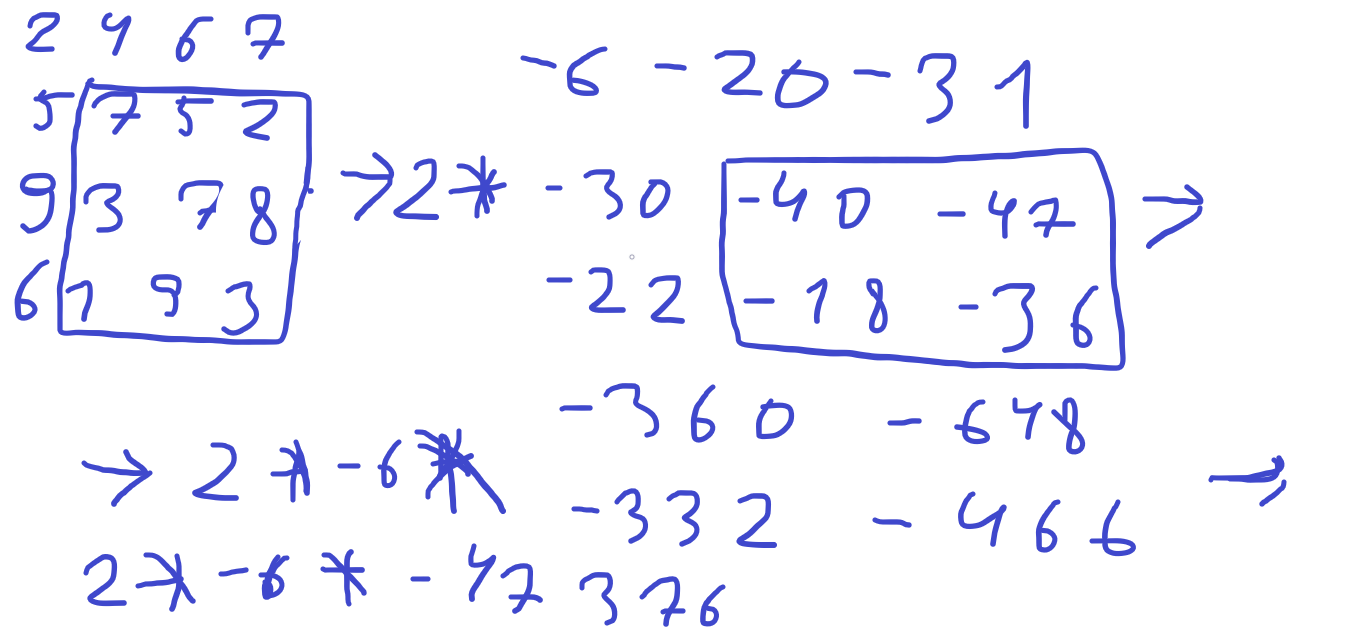 2 4 6 7
5 7 5 2
9 3 7 8
6 1 9 3
→ 2 * -6 -20 -31
-30 -40 -47 →
-22 -18 -36
→ 2 * -6 * -360 -648
-332 -466 →
2 * -6 * -47376